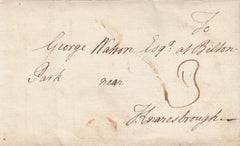 To
George Watson Esqr. at Bilton
Park near
Knaresbrough